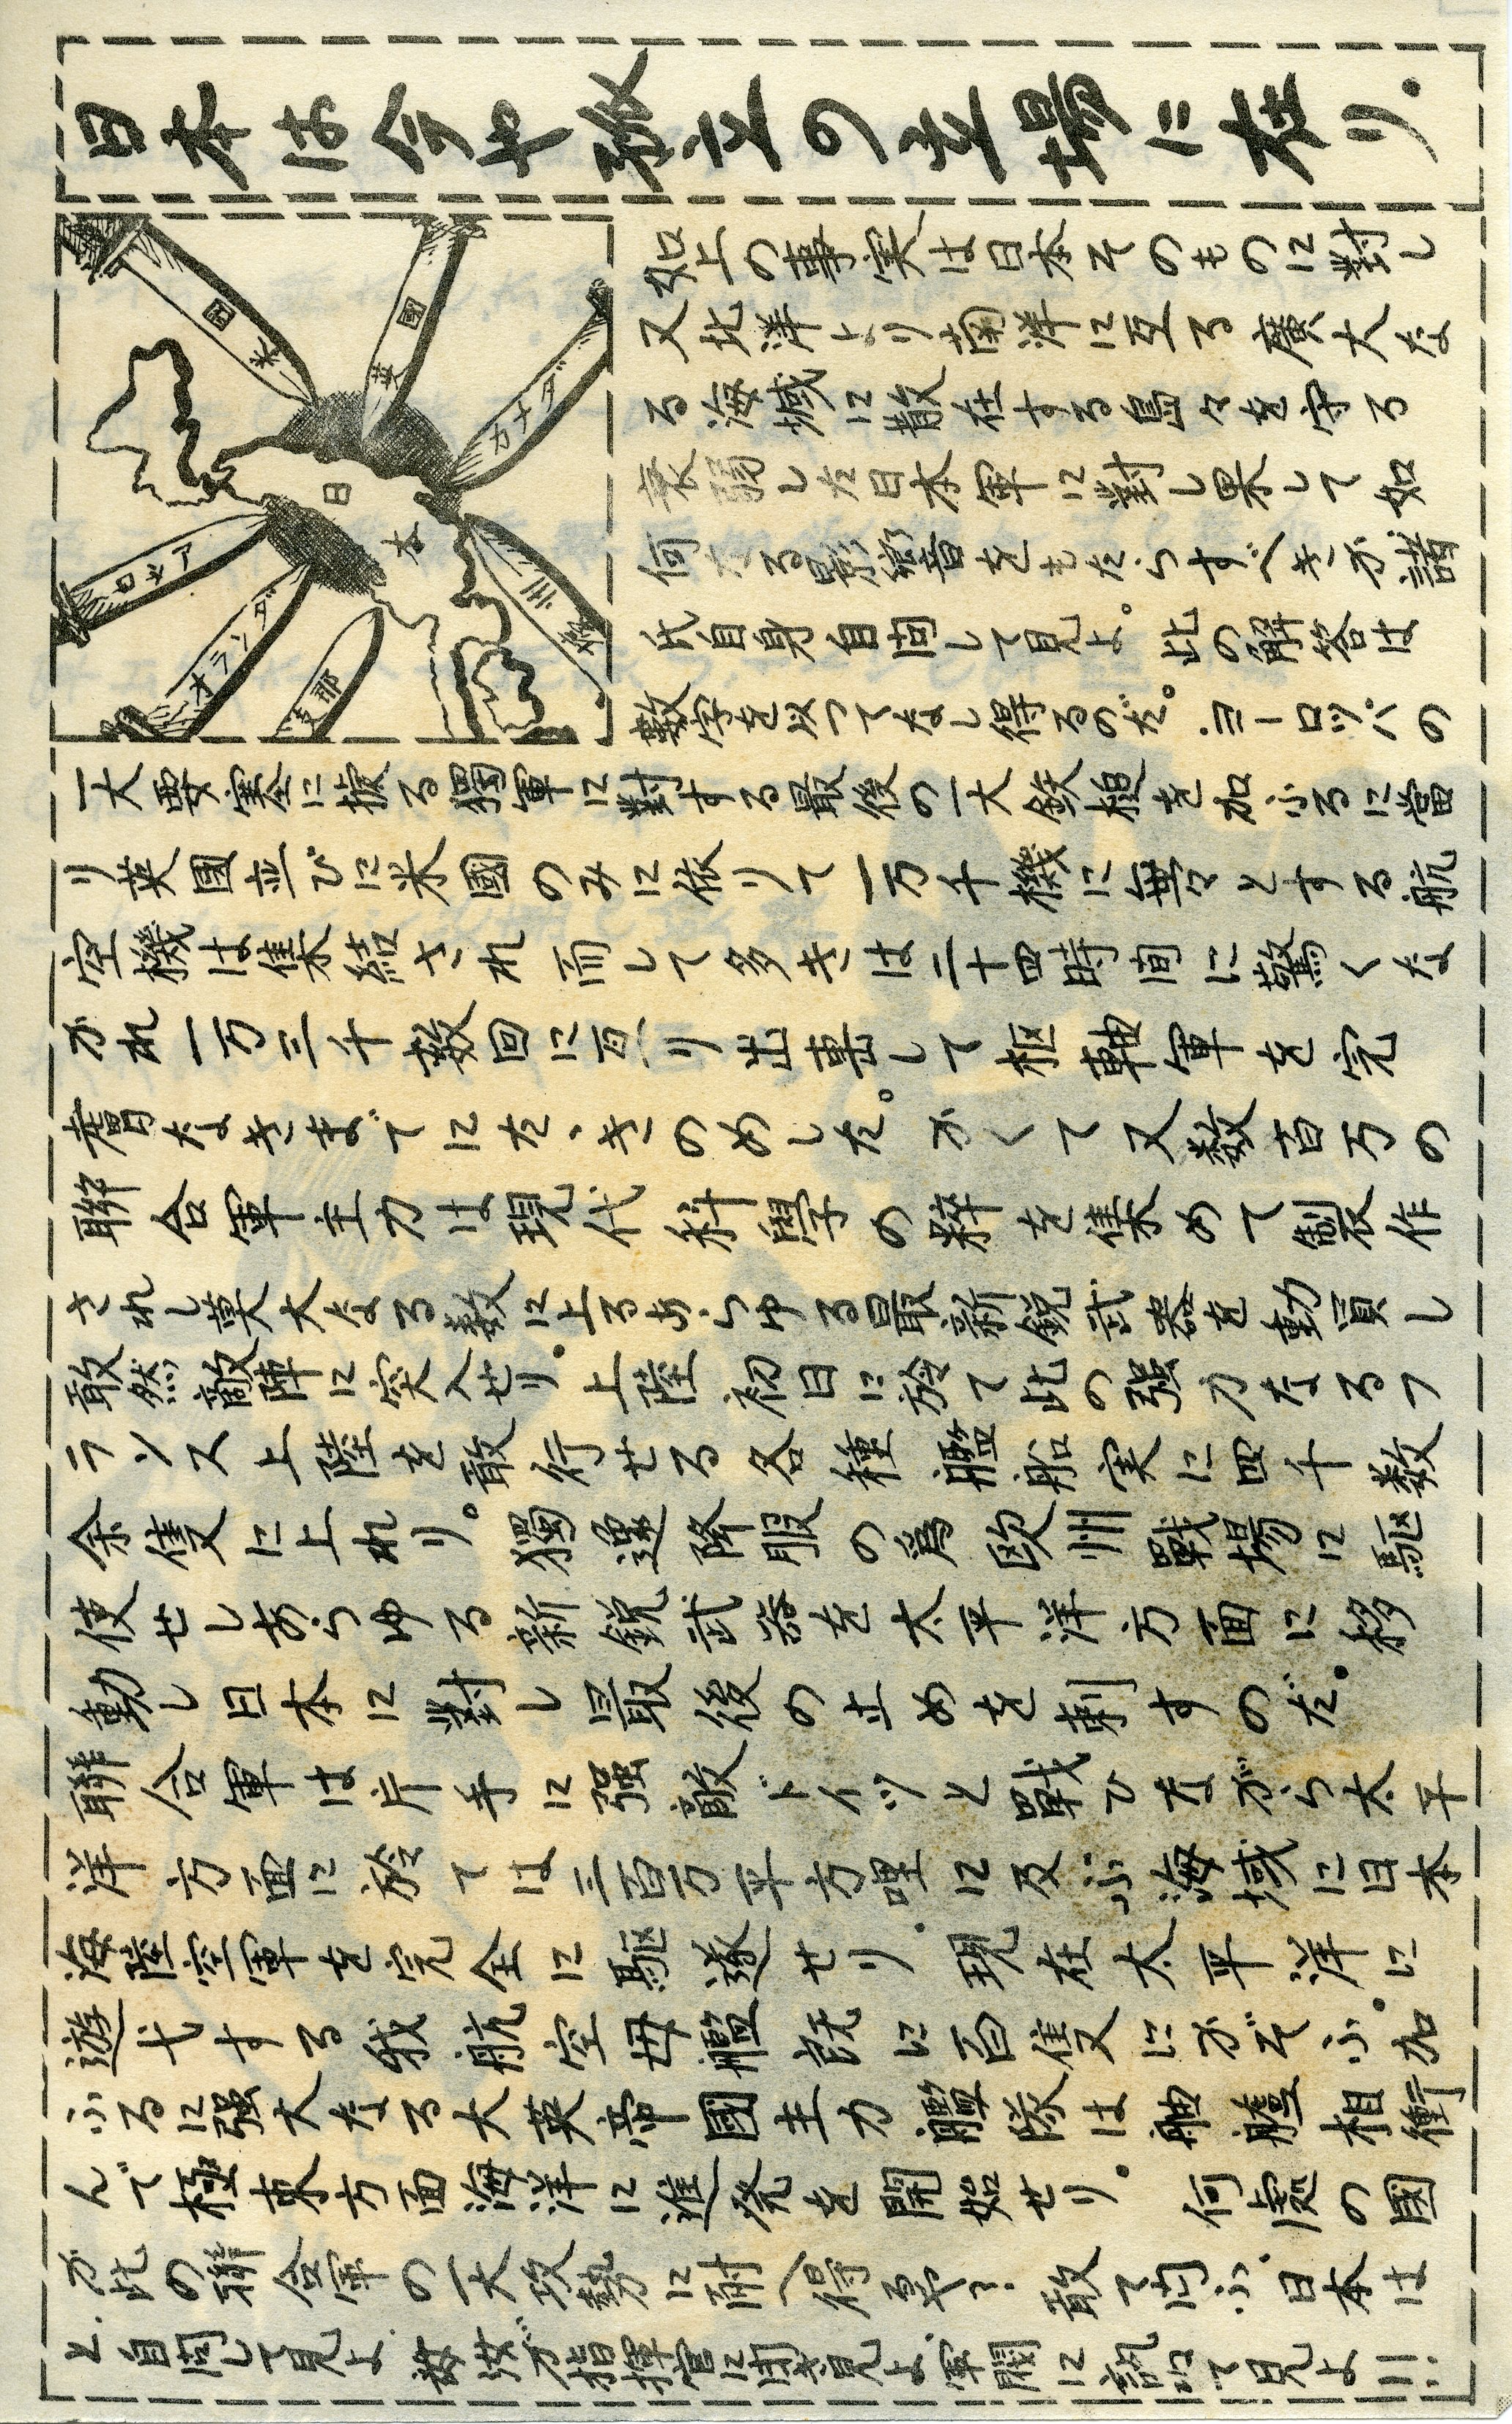 日本は今や孤立の立場に在り。
米国
英國
カナダ
濠洲
日本
ロシア
オランダ
支那
如上の事実は日本そのものに對し
又北洋より南洋に亙る廣大な
る海域に散在する島々を守る
衰弱した日本軍に對し果して如
何なる影響をもたらすべきか諸
氏自身自問して見よ。此の解答は
数字を以つてなし得るのだ。ヨーロッパの
一大要塞に據る獨軍に對する最後の一大鉄槌を加ふるに當
り英国並びに米國のみに依りて一万千機に垂々とする航
空機は集結され而して多きは二十四時間に驚くな
かれ一万三千数回に亘り出撃して枢軸軍を完
膚なきまでにたゝきのめした。かくて又数百万の
聯合軍主力は現代科學の粹を集めて製作
されし莫大なる数に上るあらゆる最新鋭武器を動員し
敢然敵陣に突入せり。上陸初日に於て此の強力なるフ
ランス上陸を敢行せる各種艦船実に四千数
余隻に上れり。獨逸降服の為欧州戰場に駆
使せしあらゆる新鋭武器を太平洋方面に移
動し日本に對し最後の止めを刺すのだ。
聯合軍は片手に強敵ドイツと戰ひながら太平
洋方面に於ては三百万平方哩に及ぶ海域に日本
海陸空軍を完全に駆逐せり。現在太平洋に
遊弋する我航空母艦既に百隻にかぞふ。加
ふるに強大なる大英帝國主力艦隊は舳艫相衝
んで極東方面海洋に進発を開始せり。何處の國
が此の聯合軍の一大攻勢に耐へ得るや? 敢て問ふ、日本は
と自問して見よ。指揮官に問ふて見よ。軍閥に訊ねて見よ!!